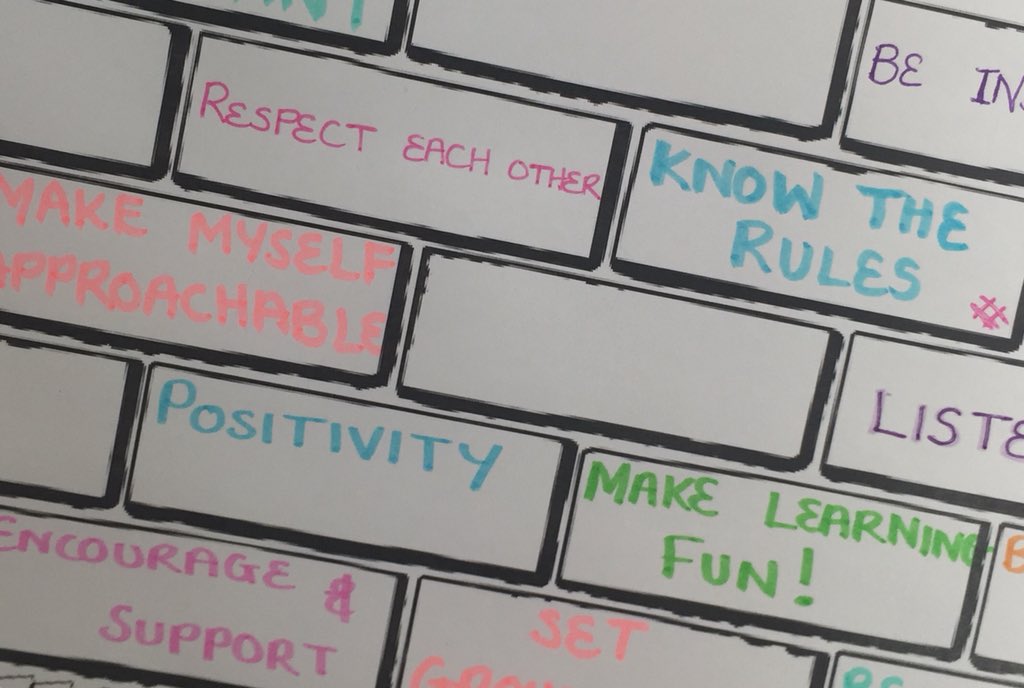 BE
RESPECT EACH OTHER
KNOW THE
RULES
MAKE MYSELF
APPROACHABLE
POSITIVITY
MAKE LEARNING
FUN!
ENCOURAGE &
SUPPORT
SET